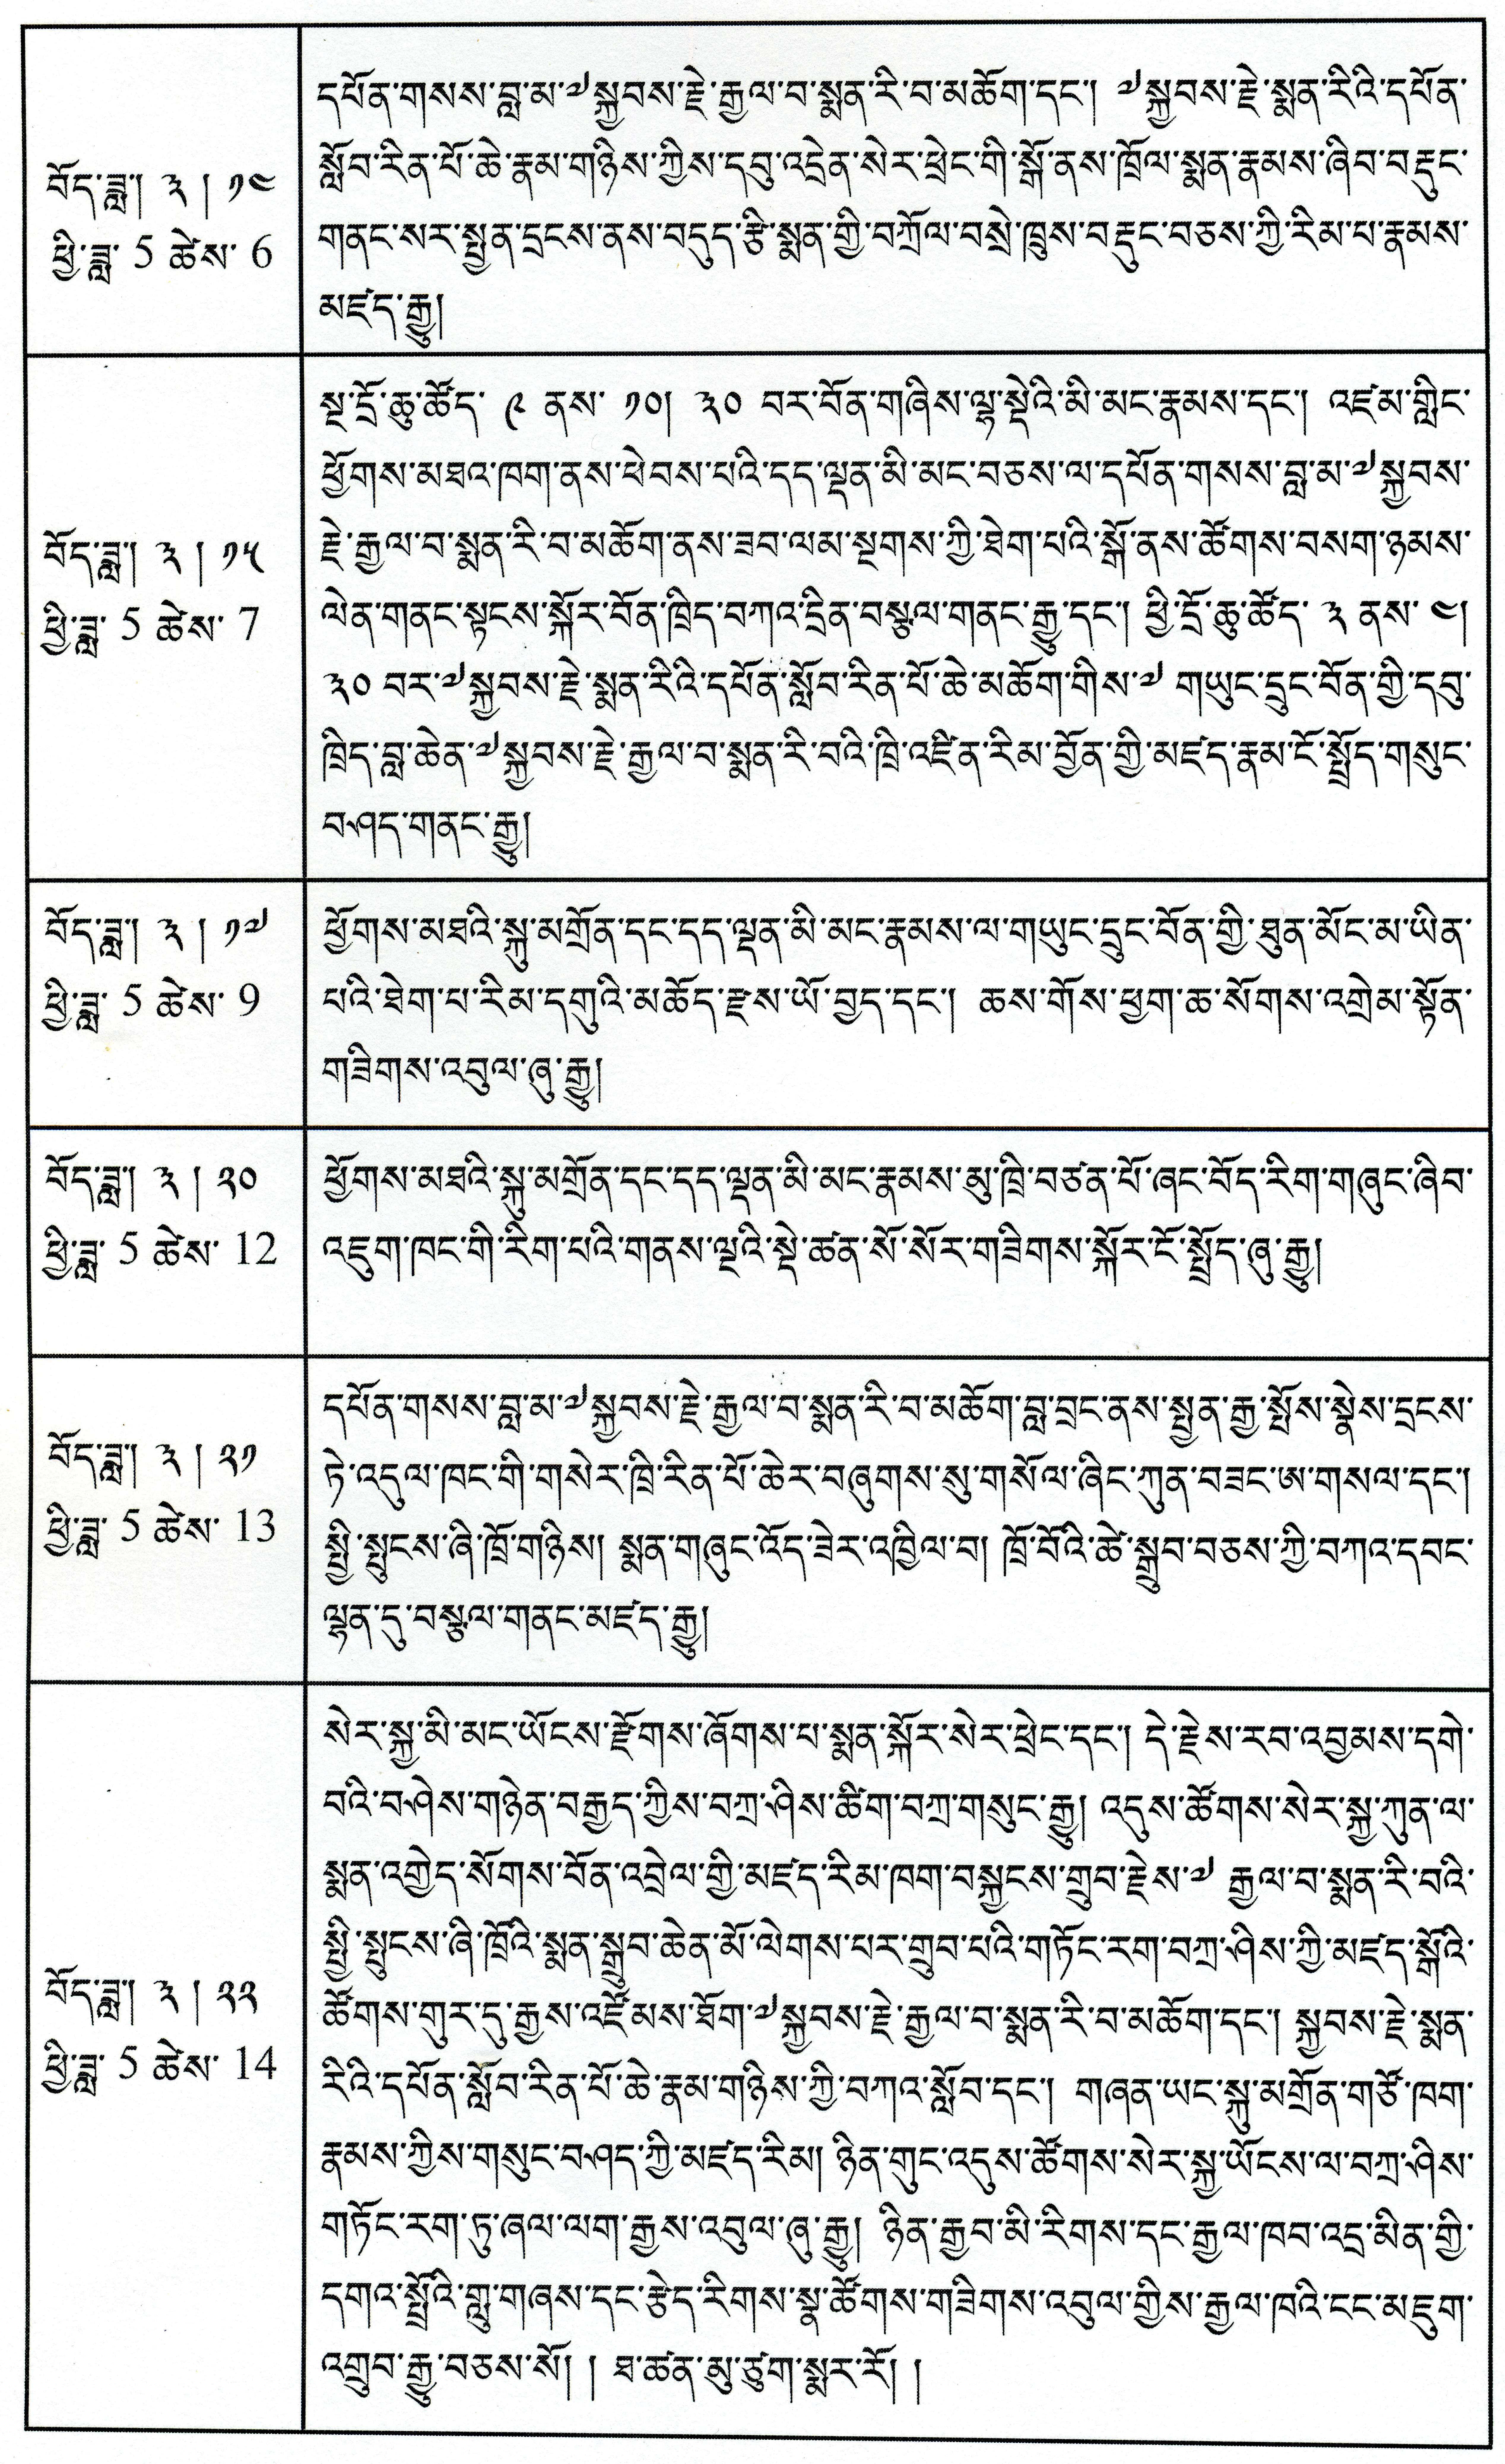 བོད་ཟླ། ༣ | ༡༤
ཕྱི་ཟླ་ 5 ཚེས་ 6
དཔོན་གསས་བླ་མ་༧སྐྱབས་རྗེ་རྒྱལ་བ་སྨན་རི་བ་མཆོག་དང་། ༧སྐྱབས་རྗེ་སྨན་རིའི་དཔོན་
སློབ་རིན་པོ་ཆེ་རྣམ་གཉིས་ཀྱིས་དབུ་འདྲེན་སེར་ཕྲེང་གི་སྒོ་ནས་ཁྲོལ་སྨན་རྣམས་ཞིབ་བརྡུང་
གནང་སར་སྤྱན་དྲངས་ནས་བདུད་རྩི་སྨན་གྱི་བཀྲོལ་བསྲེ་ཁྲུས་བརྡུང་བཅས་ཀྱི་རིམ་པ་རྣམས་
མཛད་རྒྱུ།
བོད་ཟླ། ༣ | ༡༥
ཕྱི་ཟླ་ 5 ཚེས་ 7
སྔ་དྲོ་ཆུ་ཚོད་ ༩ ནས་ ༡༠། ༣༠ བར་བོན་གཞིས་ལྷ་སྡེའི་མི་མང་རྣམས་དང་། འཛམ་གླིང་
ཕྱོགས་མཐའ་ཁག་ནས་ཕེབས་པའི་དད་ལྡན་མི་མང་བཅས་ལ་དཔོན་གསས་བླ་མ་༧སྐྱབས་
རྗེ་རྒྱལ་བ་སྨན་རི་བ་མཆོག་ནས་ཟབ་ལམ་སྔགས་ཀྱི་ཐེག་པའི་སྒོ་ནས་ཚོགས་བསག་ཉམས་
ལེན་གནང་སྟངས་སྐོར་བོན་ཁྲིད་བཀའ་དྲིན་བསྩལ་གནང་རྒྱུ་དང་། ཕྱི་དྲོ་ཆུ་ཚོད་ ༣ ནས་ ༤།
༣༠ བར་༧སྐྱབས་རྗེ་སྨན་རིའི་དཔོན་སློབ་རིན་པོ་ཆེ་མཆོག་གིས་༧ གཡུང་དྲུང་བོན་གྱི་དབུ་
ཁྲིད་བླ་ཆེན་༧སྐྱབས་རྗེ་རྒྱལ་བ་སྨན་རི་བའི་ཁྲི་འཛིན་རིམ་བྱོན་གྱི་མཛད་རྣམ་ངོ་སྤྲོད་གསུང་
བཤད་གནང་རྒྱུ།
བོད་ཟླ། ༣ | ༡༧
ཕྱི་ཟླ་ 5 ཚེས་ 9
ཕྱོགས་མཐའི་སྐུ་མགྲོན་དང་དད་ལྡན་མི་མང་རྣམས་ལ་གཡུང་དྲུང་བོན་གྱི་ཐུན་མོང་མ་ཡིན་
པའི་ཐེག་པ་རིམ་དགུའི་མཆོད་རྫས་ཡོ་བྱད་དང་། ཆས་གོས་ཕྱག་ཆ་སོགས་འགྲེམ་སྟོན་
གཟིགས་འབུལ་ཞུ་རྒྱུ།
བོད་ཟླ། ༣ | ༢༠
ཕྱི་ཟླ་ 5 ཚེས་ 12
ཕྱོགས་མཐའི་སྐུ་མགྲོན་དང་དད་ལྡན་མི་མང་རྣམས་མུ་ཁྲི་བཙན་པོ་ཞང་བོད་རིག་གཞུང་ཞིབ་
འཇུག་ཁང་གི་རིག་པའི་གནས་ལྔའི་སྡེ་ཚན་སོ་སོར་གཟིགས་སྐོར་ངོ་སྤྲོད་ཞུ་རྒྱུ།
བོད་ཟླ། ༣ | ༢༡
ཕྱི་ཟླ་ 5 ཚེས་ 13
དཔོན་གསས་བླ་མ་༧སྐྱབས་རྗེ་རྒྱལ་བ་སྨན་རི་བ་མཆོག་བླ་བྲང་ནས་སྤྱན་རྒྱ་སྤོས་སྣེས་དྲངས་
ཏེ་འདུལ་ཁང་གི་གསེར་ཁྲི་རིན་པོ་ཆེར་བཞུགས་སུ་གསོལ་ཞིང་ཀུན་བཟང་ཨ་གསལ་དང་།
སྤྱི་སྤུངས་ཞི་ཁྲོ་གཉིས། སྨན་གཞུང་འོད་ཟེར་འཁྱིལ་བ། ཁྲོ་བོའི་ཚེ་སྒྲུབ་བཅས་ཀྱི་བཀའ་དབང་
ལྷན་དུ་བསྩལ་གནང་མཛད་རྒྱུ།
བོད་ཟླ། ༣ | ༢༢
ཕྱི་ཟླ་ 5 ཚེས་ 14
སེར་སྐྱ་མི་མང་ཡོངས་རྫོགས་ཞོགས་པ་སྨན་སྐོར་སེར་ཕྲེང་དང་། དེ་རྗེས་རབ་འབྱམས་དགེ་
བའི་བཤེས་གཉེན་བརྒྱད་ཀྱིས་བཀྲ་ཤིས་ཚིག་བཀྲ་གསུང་རྒྱུ། འདུས་ཚོགས་སེར་སྐྱ་ཀུན་ལ་
སྨན་འགྱེད་སོགས་བོན་འབྲེལ་གྱི་མཛད་རིམ་ཁག་བསྐྱངས་གྲུབ་རྗེས་༧ རྒྱལ་བ་སྨན་རི་བའི་
སྤྱི་སྤུངས་ཞི་ཁྲོའི་སྨན་སྒྲུབ་ཆེན་མོ་ལེགས་པར་གྲུབ་པའི་གཏོང་རག་བཀྲ་ཤིས་ཀྱི་མཛད་སྒོའི་
ཚོགས་གུར་དུ་རྒྱས་འཛོམས་ཐོག་༧སྐྱབས་རྗེ་རྒྱལ་བ་སྨན་རི་བ་མཆོག་དང་། སྐྱབས་རྗེ་སྨན་
རིའི་དཔོན་སློབ་རིན་པོ་ཆེ་རྣམ་གཉིས་ཀྱི་བཀའ་སློབ་དང་། གཞན་ཡང་སྐུ་མགྲོན་གཙོ་ཁག་
རྣམས་ཀྱིས་གསུང་བཤད་ཀྱི་མཛད་རིམ། ཉིན་གུང་འདུས་ཚོགས་སེར་སྐྱ་ཡོངས་ལ་བཀྲ་ཤིས་
གཏོང་རག་ཏུ་ཞལ་ལག་རྒྱས་འབུལ་ཞུ་རྒྱུ། ཉིན་རྒྱབ་མི་རིགས་དང་རྒྱལ་ཁབ་འདྲ་མིན་གྱི་
དགའ་སྤྲོའི་གླུ་གཞས་དང་རྩེད་རིགས་སྣ་ཚོགས་གཟིགས་འབུལ་གྱིས་རྒྱལ་ཁའི་ངང་མཇུག་
འགྲུབ་རྒྱུ་བཅས་སོ། ། ཐ་ཚན་མུ་ཙུག་སྨར་རོ། །